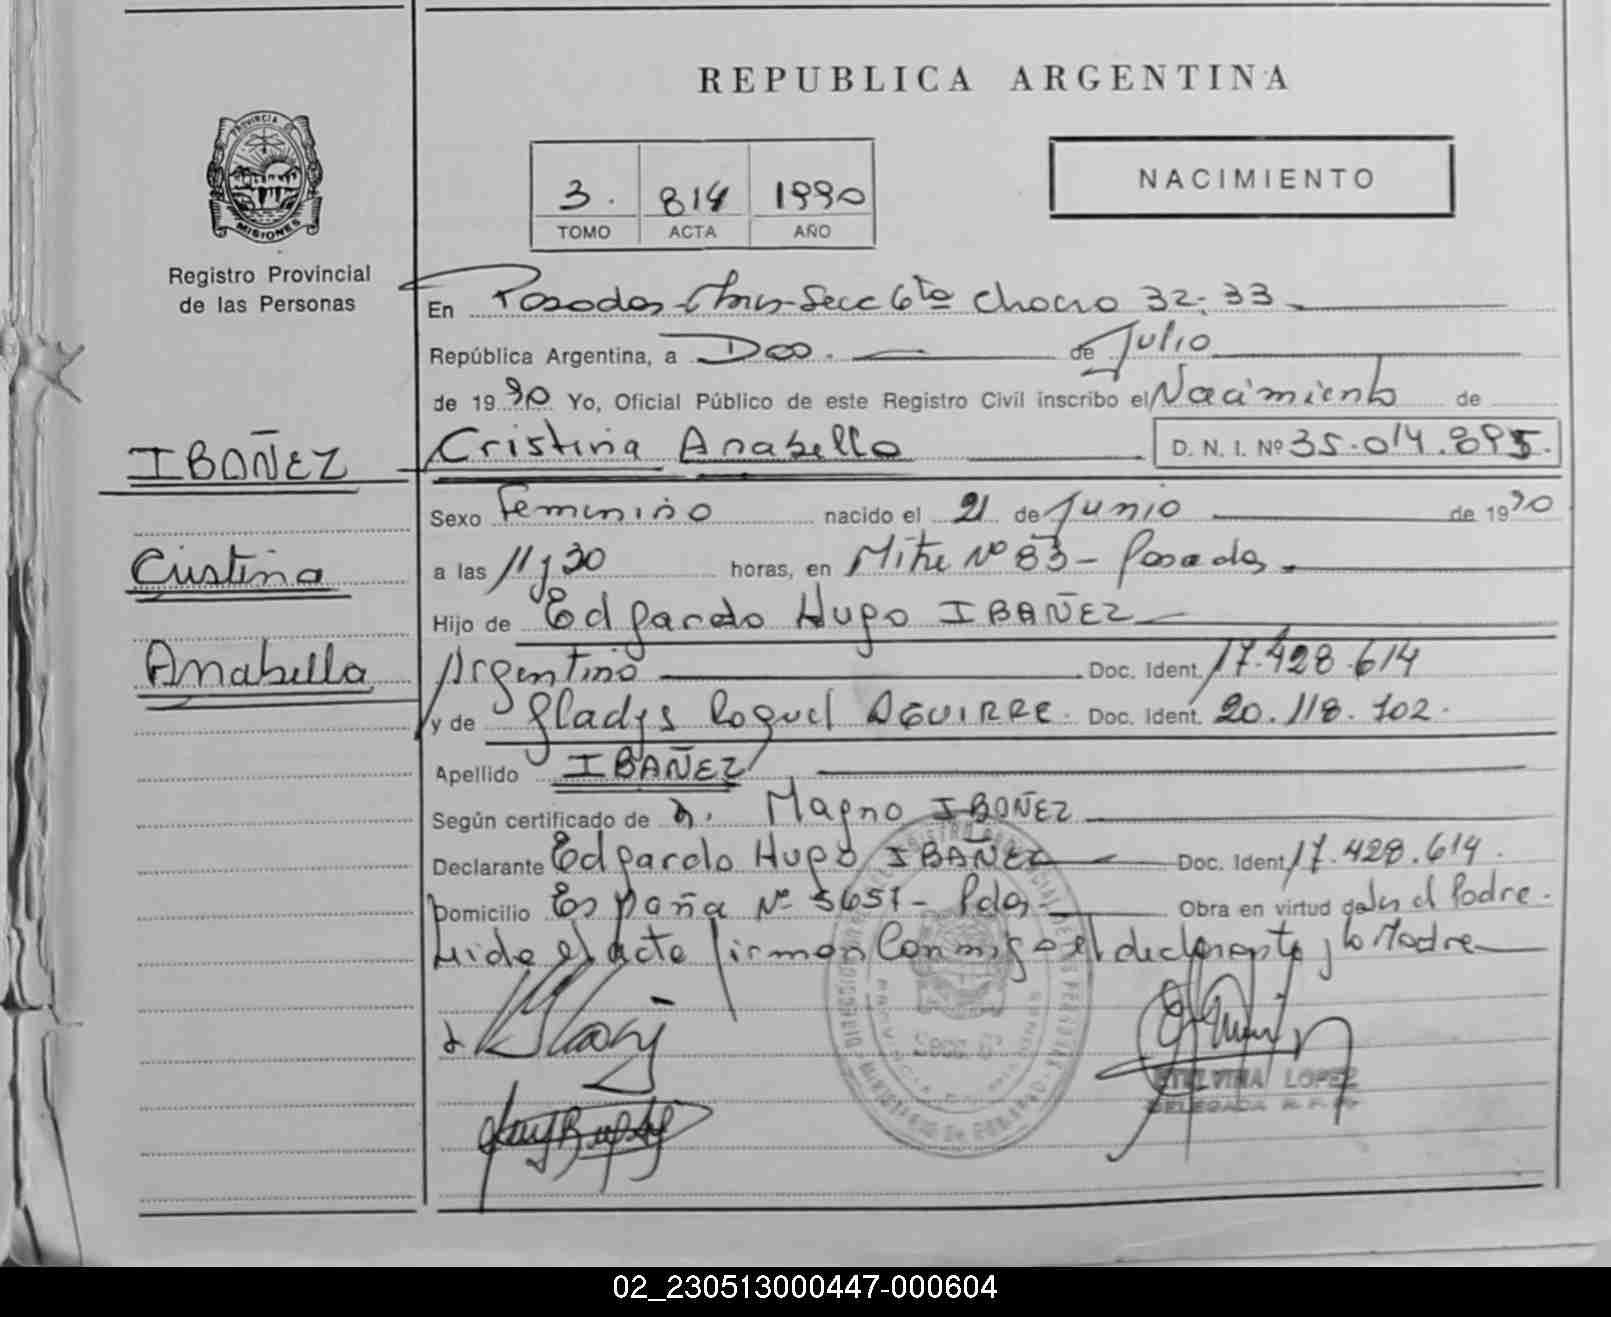 REPUBLICA ARGENTINA
PROVINCIA DE
MISIONES
Registro Provincial
de las Personas
3. 814 1990
TOMO ACTA AÑO
NACIMIENTO
En Posadas - Mnes - Secc 6ta Chacra 32-33
República Argentina, a Dos. de Julio
de 1990 Yo, Oficial Público de este Registro Civil inscribo el Nacimiento de
IBAÑEZ
Cristina Anabella D. N. I. Nº 35.014.895.
Sexo Femenino nacido el 21 de Junio de 1990
Cristina
a las 11 y 30 horas, en Mitre Nº 83 - Posadas.
Hijo de Edgardo Hugo IBAÑEZ
Anabella
Argentino Doc. Ident. 17.428.614
y de Gladys Raquel AGUIRRE. Doc. Ident. 20.118.102.
Apellido IBAÑEZ
Según certificado de Dr. Magno IBAÑEZ
Declarante Edgardo Hugo IBAÑEZ Doc. Ident. 17.428.614.
Domicilio España Nº 5651 - Pdas Obra en virtud de ser el Padre.
Leida el acta firman Conmigo el declarante y la Madre
ETELVINA LOPEZ
DELEGADA R. P. P.
02_230513000447-000604